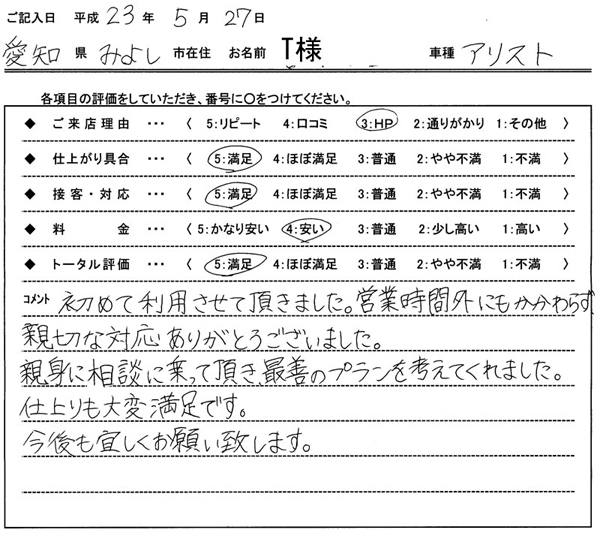 ご記入日 平成 23 年 5 月 27 日
愛知 県 みよし 市在住 お名前 T様 車種 アリスト
各項目の評価をしていただき、番号に○をつけてください。
◆ ご来店理由 ・・・ 〈 5:リピート 4:口コミ 3:HP 2:通りがかり 1:その他 〉
◆ 仕上がり具合 ・・・ 〈 5:満足 4:ほぼ満足 3:普通 2:やや不満 1:不満 〉
◆ 接客・対応 ・・・ 〈 5:満足 4:ほぼ満足 3:普通 2:やや不満 1:不満 〉
◆ 料金 ・・・ 〈 5:かなり安い 4:安い 3:普通 2:少し高い 1:高い 〉
◆ トータル評価 ・・・ 〈 5:満足 4:ほぼ満足 3:普通 2:やや不満 1:不満 〉
コメント 初めて利用させて頂きました。営業時間外にもかかわらず
親切な対応ありがとうございました。
親身に相談に乗って頂き、最善のプランを考えてくれました。
仕上りも大変満足です。
今後も宜しくお願い致します。